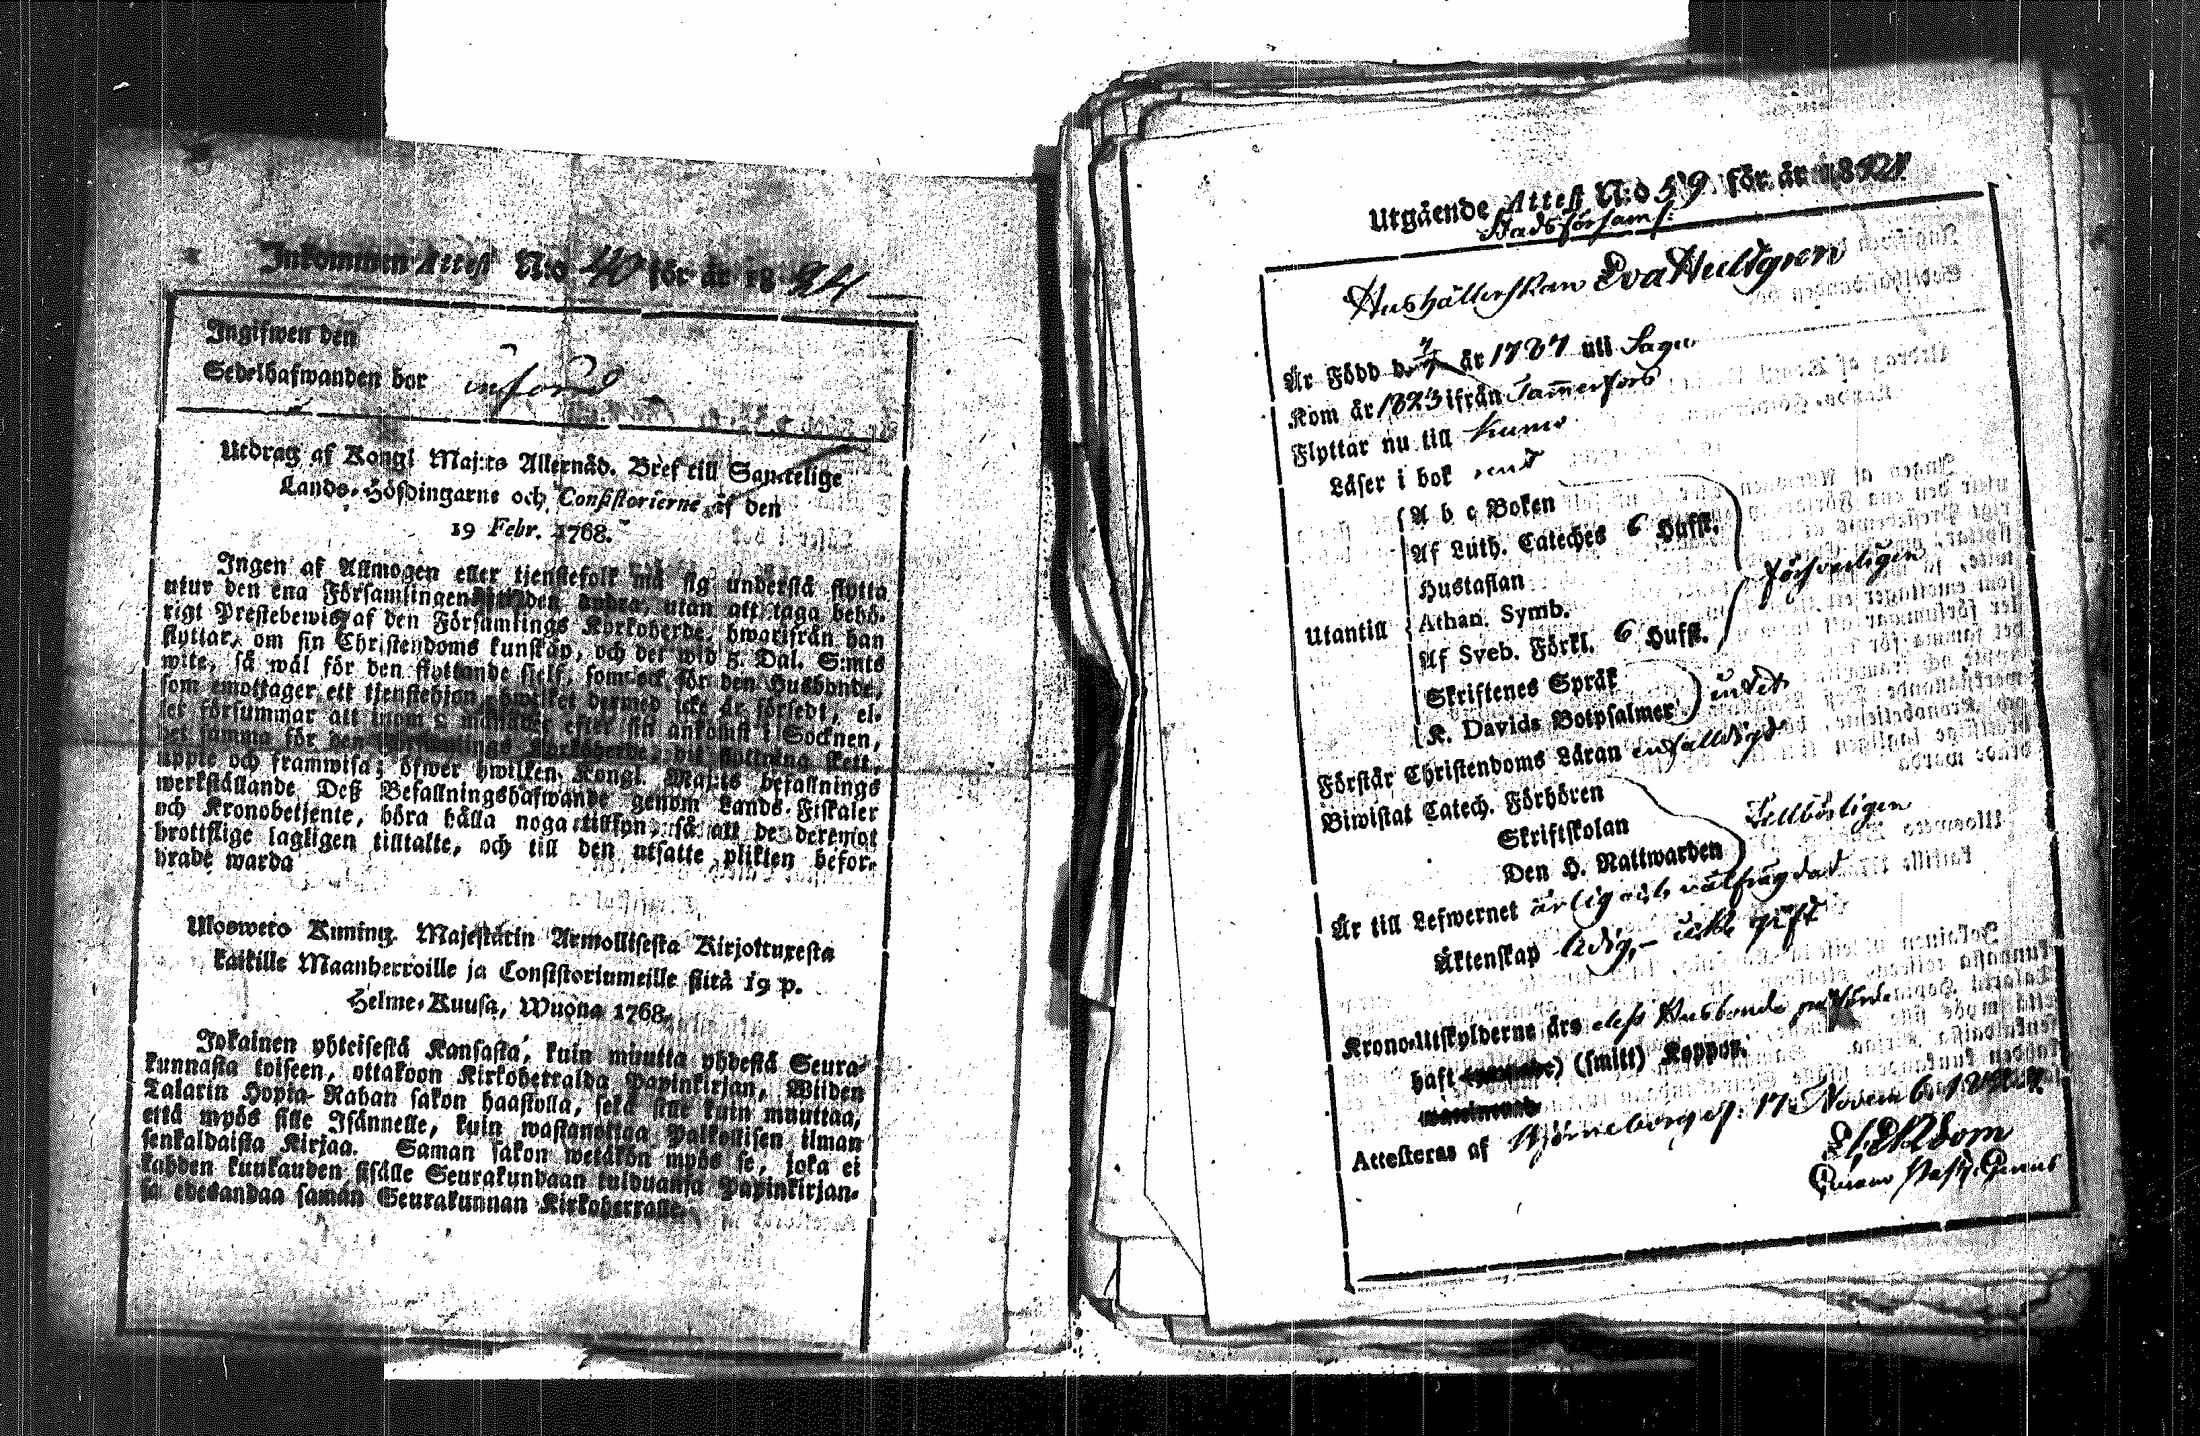 Inkommen Attest N:o 40 för år 1824
Ingifwen den
Sedelhafwanden bor införd
Utdrag af Kongl Maj:ts Allernåd. Bref till Samtelige
Lands-Höfdingarne och Consistorierne af den
19 Febr. 1768.
Ingen af Allmogen eller tjenstefolk må sig understå flytta
utur den ena Församlingen den andra, utan att taga behö-
rigt Prestebewis af den Församlings Kyrkoherde, hwarifrån han
flyttar, om sin Christendoms kunskap, och det wid 5. Dal. S:mts
wite, så wäl för den flyttande sjelf, som ock för den Husbonde,
som emottager ett tjenstehjon hwilket dermed icke är försedt, el-
ler försummar att inom 2 månader efter sin ankomst i Socknen,
det samma för den Församlings Kyrkoherde, dit flyttning skett,
uppte och framwisa; öfwer hwilken Kongl. Maj:ts befallnings
werkställande Deß Befallningshafwande genom Lands-Fiskaler
och Kronobetjente, böra hålla noga tillsyn, så att de deremot
brottslige lagligen tilltalte, och till den utsatte plikten befor-
drade warda
Ulosweto Kuning. Majestätin Armollisesta Kirjottuxesta
kaikille Maanherroille ja Consistoriumeille siitä 19 p.
Helme-Kuusa, Wuona 1768.
Jokainen yhteisestä Kansasta, kuin muutta yhdestä Seura-
kunnasta toiseen, ottakoon Kirkoherralda Papinkirjan, Wiiden
Talarin Hopia Rahan sakon haastolla, sekä sille kuin muuttaa,
että myös sille Isännelle, kuin wastanottaa Palkollisen ilman
senkaldaista Kirjaa. Saman sakon wetäkön myös se, joka ei
kahden kuukauden sisälle Seurakundaan tulduansa Papinkirjan-
sa edesandaa saman Seurakunnan Kirkoherralle.
Utgående Attest N:o 59 för år 1824
Stadsförsaml:
Hushållerskan Eva Hultgren
Är Född d. år 1787 uti Sagu
Kom år 1823 ifrån Tammerfors
Flyttar nu till Kumo
Läser i bok rent
A b c Boken
Af Luth. Cateches 6 Hufst.
Hustaflan
försvarligen
Utantill Athan. Symb.
Af Sveb. Förkl. 6 Hufst.
Skriftenes Språk
intet
K. Davids Botpsalmer
Förstår Christendoms Läran enfaldigt
Biwistat Catech. Förhören
Skriftskolan
Tillbörligen
Den H. Nattwarden
Är till Lefwernet ärlig och välfrägdad
Äktenskap ledig, icke gift
Krono-Utskylderne års dess Husbonde
haft (smitt) Koppor.
Attesteras af Björneborg d. 17 Novemb. 1824.